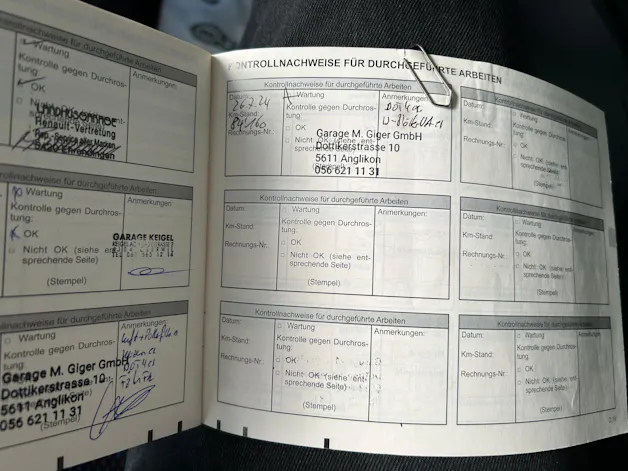 Wartung
Kontrolle gegen Durchros-
tung:
OK
Anmerkungen:
Renault-Vertretung
Kontrollnachweise für durchgeführte Arbeiten
Wartung
Kontrolle gegen Durchros-
tung:
OK
Nicht OK (siehe ent-
sprechende Seite)
(Stempel)
Anmerkungen:
GARAGE KEIGEL
Kontrollnachweise für durchgeführte Arbeiten
Wartung
Kontrolle gegen Durchros-
tung:
OK
Anmerkungen:
Garage M. Giger GmbH
Dottikerstrasse 10
5611 Anglikon
056 621 11 31
(Stempel)
KONTROLLNACHWEISE FÜR DURCHGEFÜHRTE ARBEITEN
Kontrollnachweise für durchgeführte Arbeiten
Datum:
26.7.24
Km-Stand:
Rechnungs-Nr.:
Wartung
Kontrolle gegen Durchros-
tung:
OK
Nicht OK (siehe ent-
Anmerkungen:
Garage M. Giger GmbH
Dottikerstrasse 10
5611 Anglikon
056 621 11 31
Kontrollnachweise für
Datum:
Km-Stand:
Rechnungs-Nr.:
Wartung
Kontrolle gegen Durchros-
tung:
OK
Nicht OK (siehe ent-
sprechende Seite)
(Stempel)
Kontrollnachweise für durchgeführte Arbeiten
Datum:
Km-Stand:
Rechnungs-Nr.:
Wartung
Kontrolle gegen Durchros-
tung:
OK
Nicht OK (siehe ent-
sprechende Seite)
(Stempel)
Anmerkungen:
Kontrollnachweise für durchgeführte
Datum:
Km-Stand:
Rechnungs-Nr.:
Wartung
Kontrolle gegen Durchros-
tung:
OK
Nicht OK (siehe ent-
sprechende Seite)
(Stempel)
Kontrollnachweise für durchgeführte Arbeiten
Datum:
Km-Stand:
Rechnungs-Nr.:
Wartung
Kontrolle gegen Durchros-
tung:
OK
Nicht OK (siehe ent-
sprechende Seite)
(Stempel)
Anmerkungen:
Kontrollnachweise für durchgeführte
Datum:
Km-Stand:
Rechnungs-Nr.:
Wartung
Kontrolle gegen Durchros-
tung:
OK
Nicht OK (siehe ent-
sprechende Seite)
(Stempel)